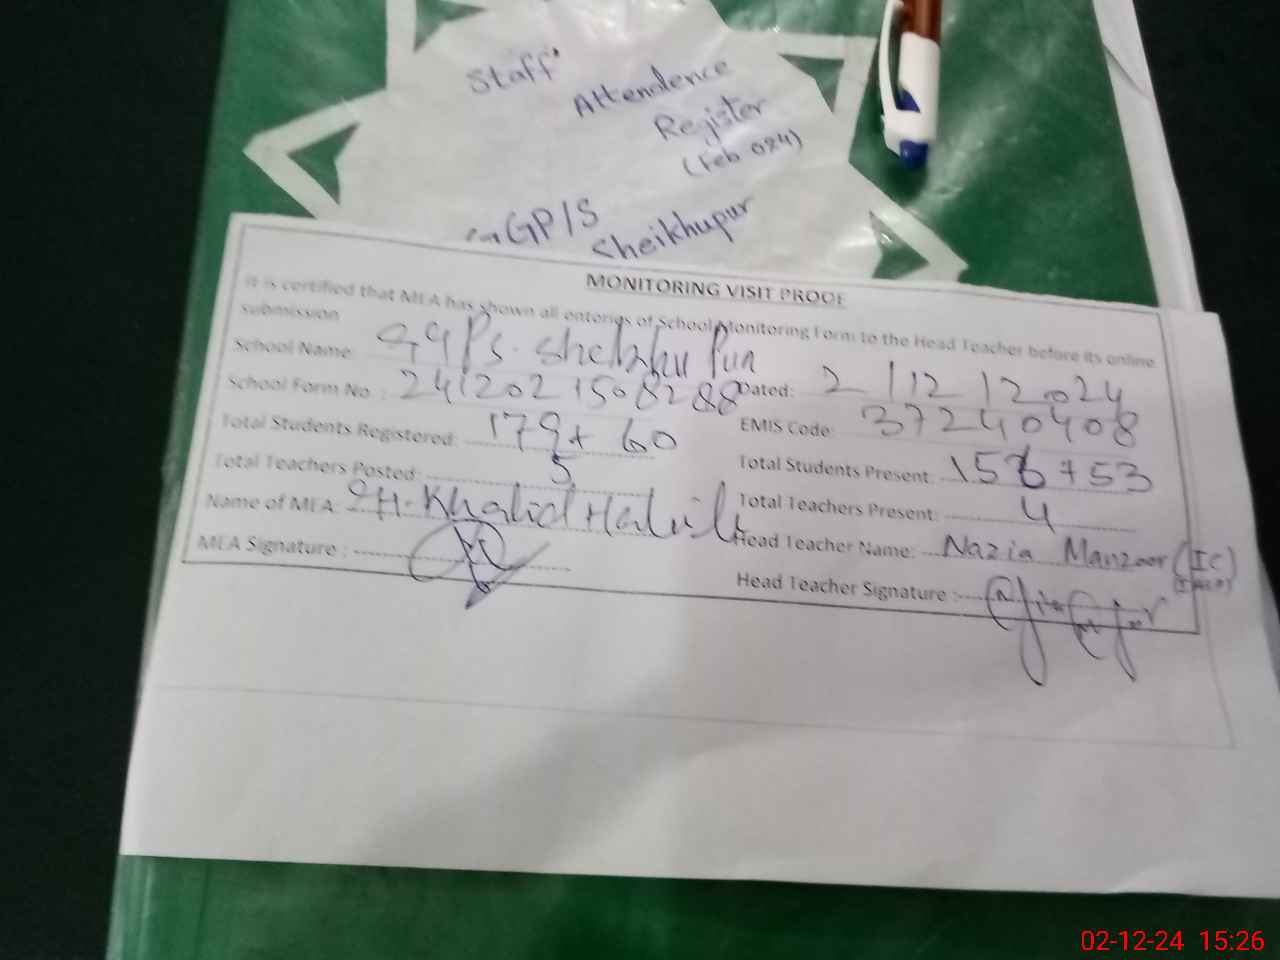 Staff
Attendence
Register
(Feb 024)
GP/S
Sheikhupur
MONITORING VISIT PROOF
It is certified that MEA has shown all enteries of School Monitoring Form to the Head Teacher before its online
submission
School Name: GGPS. Sheikhu Pur
School Form No. : 241202150828 88 Dated: 2/12/2024
EMIS Code: 37240408
Total Students Registered: 179+60
Total Students Present: 156+53
Total Teachers Posted: 5
Total Teachers Present: 4
Name of MEA: Khalid
Head Teacher Name: Nazia Manzoor (IC)
MEA Signature :
Head Teacher Signature :
02-12-24 15:26